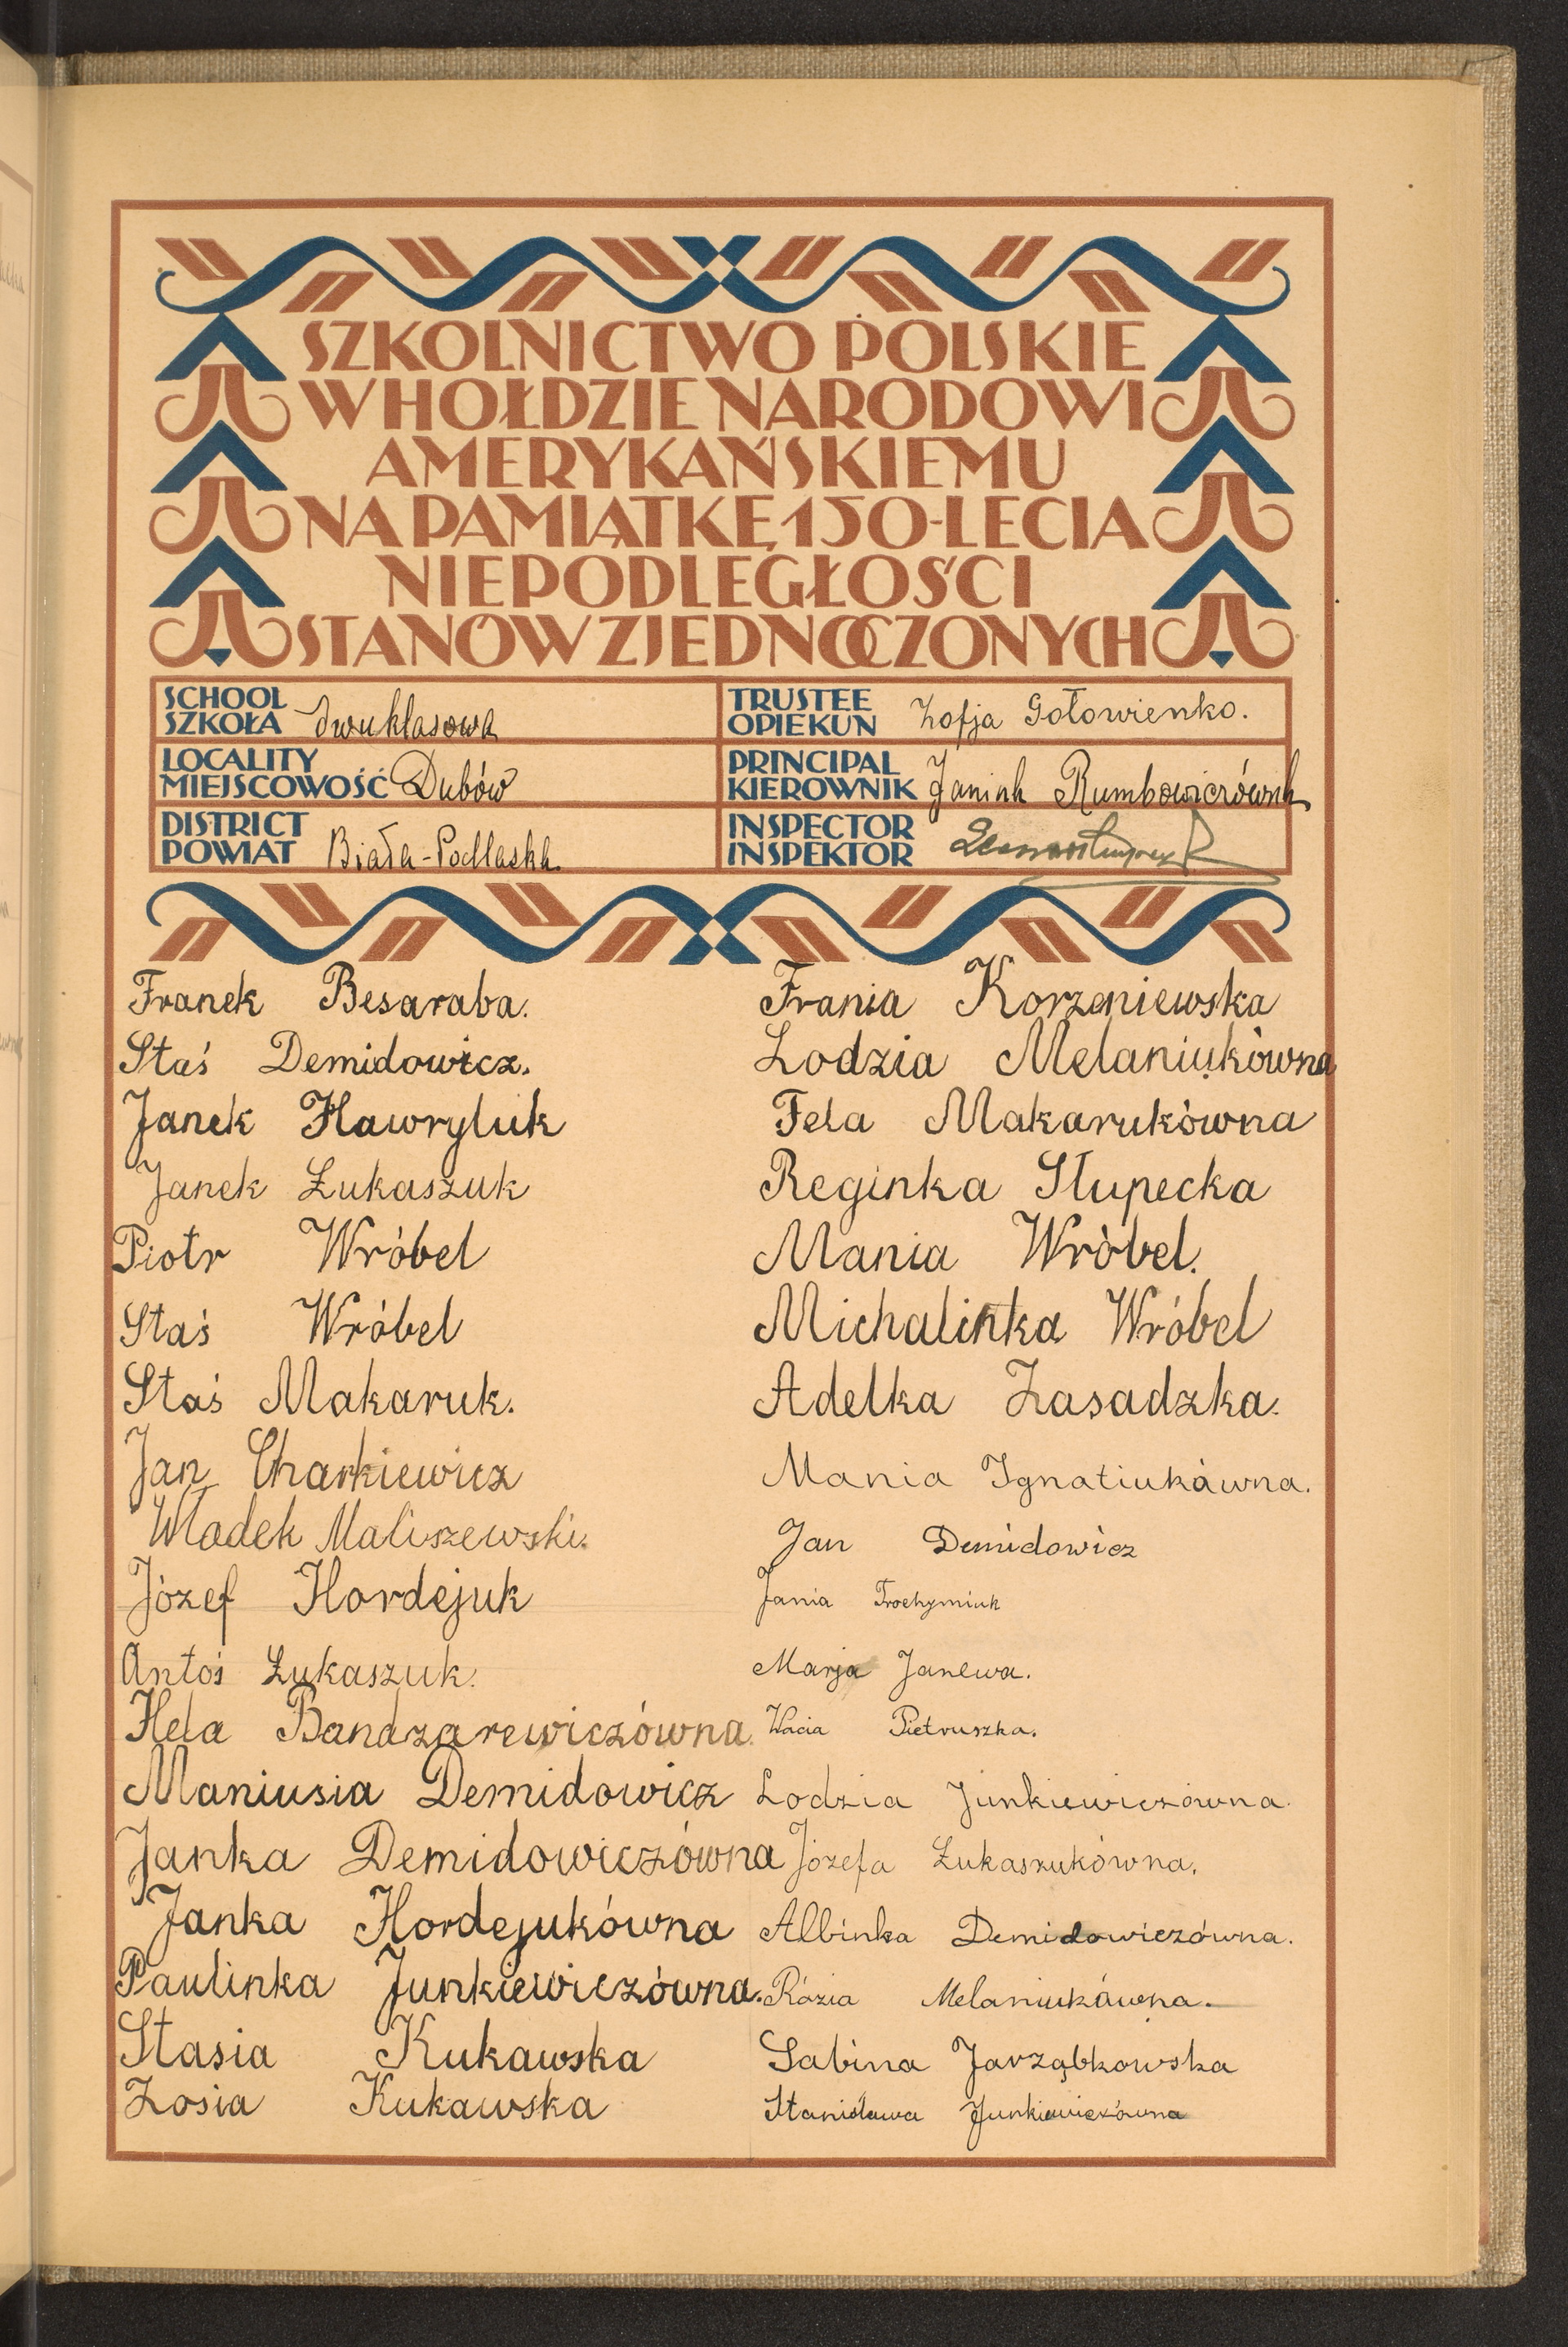 SZKOLNICTWO POLSKIE
W HOŁDZIE NARODOWI
AMERYKAŃSKIEMU
NA PAMIĄTKĘ 150-LECIA
NIEPODLEGŁOŚCI
STANÓW ZJEDNOCZONYCH
SCHOOL
SZKOŁA dwuklasowa
TRUSTEE
OPIEKUN Zofja Gołowienko.
LOCALITY
MIEJSCOWOŚĆ Dubów
PRINCIPAL
KIEROWNIK Janina Rumbowiczówna
DISTRICT
POWIAT Biała-Podlaska.
INSPECTOR
INSPEKTOR
Franek Besaraba.
Staś Demidowicz.
Janek Hawryluk
Janek Łukaszuk
Piotr Wróbel
Staś Wróbel
Staś Makaruk.
Jan Charkiewicz
Władek Maliszewski.
Józef Hordejuk
Antoś Łukaszuk.
Hela Bandzarewiczówna.
Maniusia Demidowicz
Janka Demidowiczówna
Janka Hordejukówna
Paulinka Junkiewiczówna.
Stasia Kukawska
Zosia Kukawska
Frania Korzeniewska
Lodzia Melaniukówna
Fela Makarukówna
Reginka Słupecka
Mania Wróbel.
Michalinka Wróbel
Adelka Zasadzka.
Mania Ignatiukówna.
Jan Demidowicz
Jania Trochymiuk
Marja Janewa.
Wacia Pietruszka.
Lodzia Junkiewiczówna.
Józefa Łukaszukówna.
Albinka Demidowiczówna.
Rózia Melaniukówna.
Sabina Jarząbkowska
Stanisława Junkiewiczówna